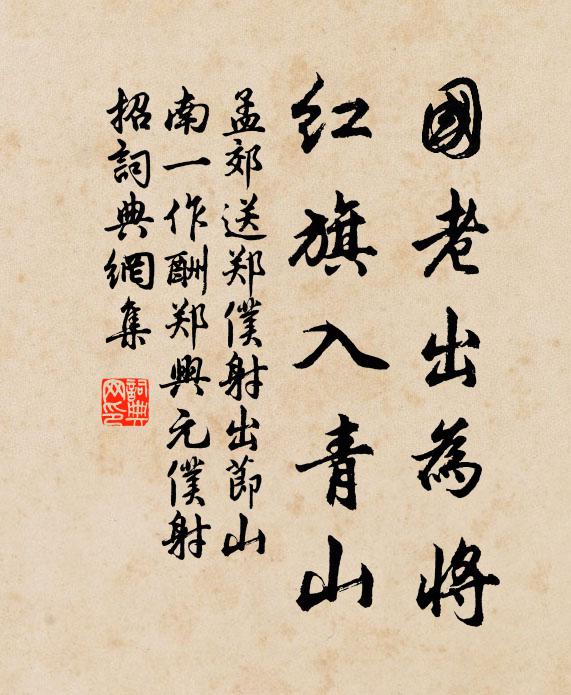 國老出為將
红旗入青山
孟郊送郑僕射出節山
南一作酬郑興元僕射
招詞典網集
詞典
网印